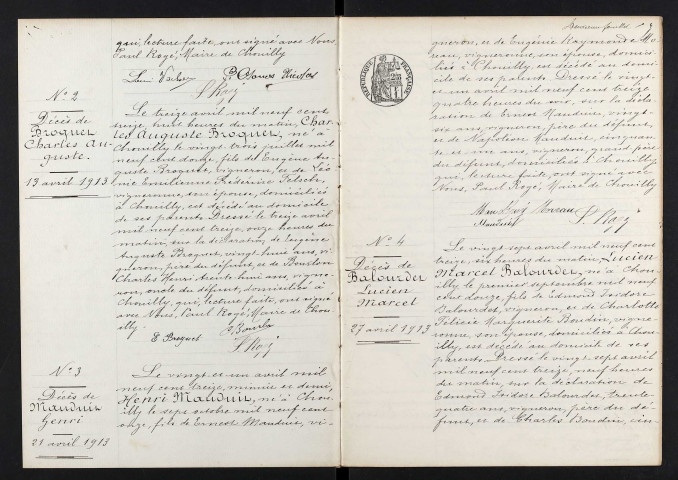 qui, lecture faite, ont signé avec Nous
Paul Rogé, Maire de Chouilly
P. Rogé
N° 2
Décès de
Broquet
Charles Au-
guste.
13 avril 1913
Le treize avril mil neuf cent
treize, huit heures du matin, Char-
les Auguste Broquet, né à
Chouilly le vingt trois juillet mil
neuf cent douze, fils de Eugène Au-
guste Broquet, vigneron, et de Léo-
nie Emilienne
vigneronne, son épouse, domiciliés
à Chouilly, est décédé au domicile
de ses parents. Dressé le treize avril
mil neuf cent treize, onze heures du
matin, sur la déclaration de Eugène
Auguste Broquet, vingt huit ans, vi-
gneron, père du défunt, et de
Charles Henri, trente huit ans, vigne-
ron, oncle du défunt, domiciliés à
Chouilly, qui, lecture faite, ont signé
avec Nous, Paul Rogé, Maire de Chou-
illy.
E Broquet
P. Rogé
N° 3
Décès de
Mauduit
Henri
21 avril 1913
Le vingt et un avril mil
neuf cent treize, minuit et demi,
Henri Mauduit, né à Chou-
illy le sept octobre mil neuf cent
onze, fils de Ernest Mauduit, vi-
gneron, et de Eugénie Raymonde Mo-
reau, vigneronne, son épouse, domici-
liés à Chouilly, est décédé au domi-
cile de ses parents. Dressé le vingt-
et un avril mil neuf cent treize,
quatre heures du soir, sur la décla-
ration de Ernest Mauduit, vingt-
six ans, vigneron, père du défunt,
et de Napoléon Mauduit, cinquan-
te ans, vigneron, grand père
du défunt, domiciliés à Chouilly,
qui, lecture faite, ont signé avec
Nous, Paul Rogé, Maire de Chouilly
Moreau
Mauduit
P. Rogé
RÉPUBLIQUE FRANÇAISE
N° 4
Décès de
Balourdet
Lucien
Marcel
27 avril 1913
Le vingt sept avril mil neuf cent
treize, six heures du matin, Lucien
Marcel Balourdet, né à Chou-
illy le premier septembre mil neuf
cent douze, fils de Edmond Isidore
Balourdet, vigneron, et de Charlotte
Félicie Marguerite Boudin, vigne-
ronne, son épouse, domiciliés à Chou-
illy, est décédé au domicile de ses
parents. Dressé le vingt sept avril
mil neuf cent treize, neuf heures
du matin, sur la déclaration de
Edmond Isidore Balourdet, trente
quatre ans, vigneron, père du dé-
funt, et de Charles Boudin, cin-